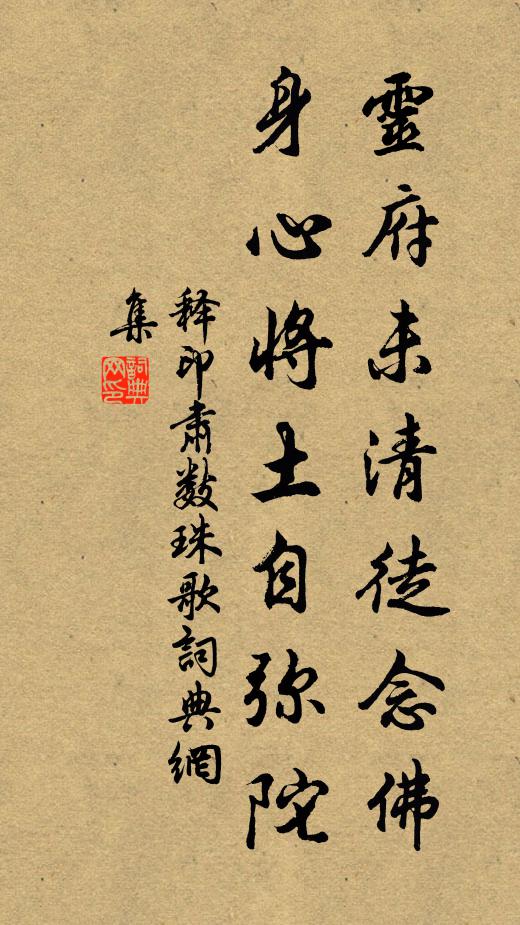 靈府未清徒念佛
身心將土自弥陀
释印肃數珠歌詞典網
集
詞典
网印